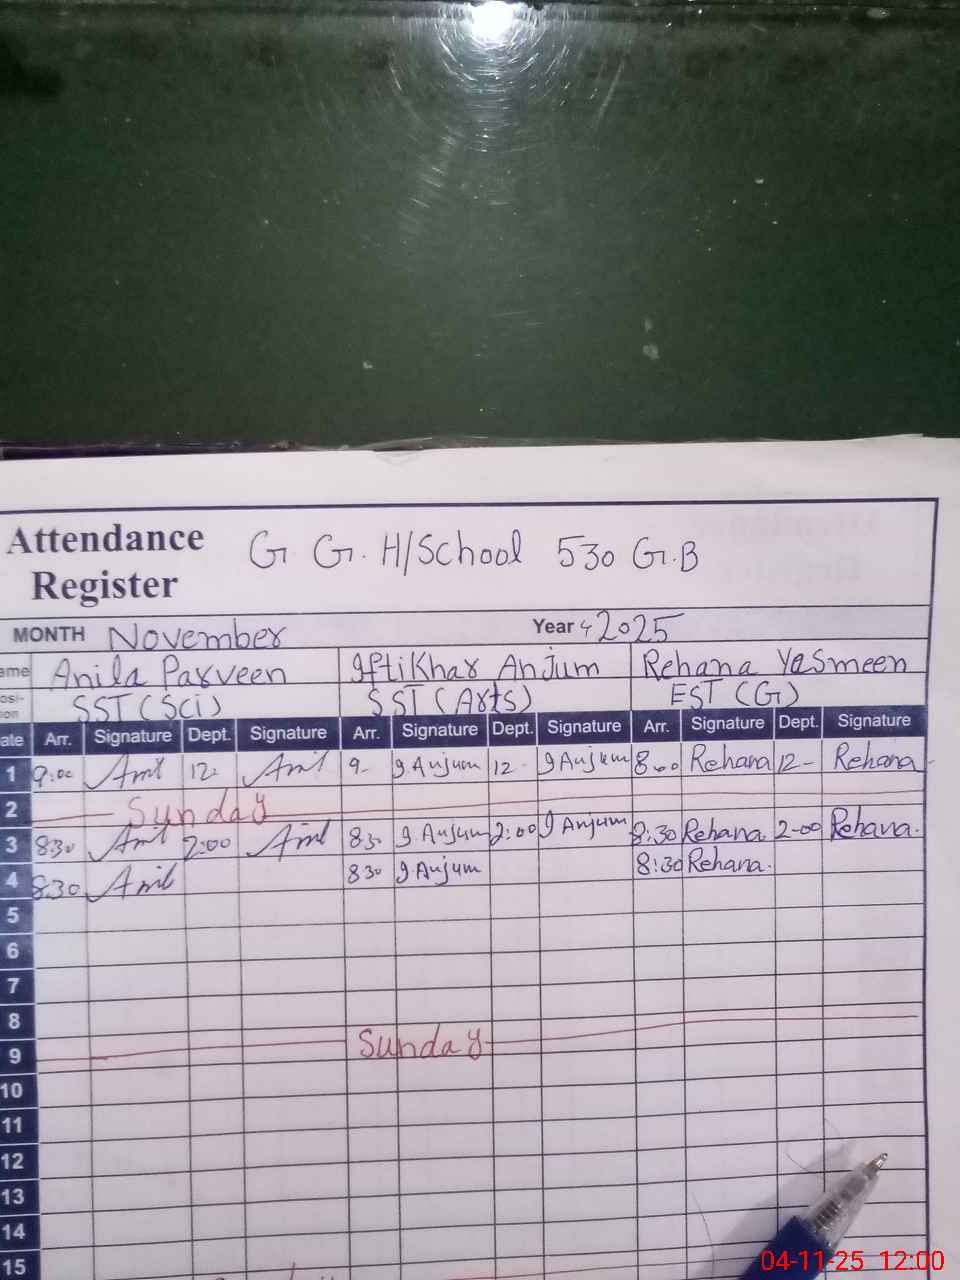 Attendance Register
G. G. H/School 530 G.B
MONTH November Year 2025
ame Anila Parveen Iftikhar Anjum Rehana Yasmeen
osi-
ion SST (Sci) SST (Arts) EST (G)
ate Arr. Signature Dept. Signature Arr. Signature Dept. Signature Arr. Signature Dept. Signature
1 9:00 12 9 I Anjum 12 I Anjum 8:00 Rehana 12 Rehana
2 Sunday
3 830 2:00 830 I. Anjum 2:00 I Anjum 8:30 Rehana 2-00 Rehana.
4 830 830 I Anjum 8:30 Rehana.
5
6
7
8
9 Sunday
10
11
12
13
14
15
04-11-25 12:00